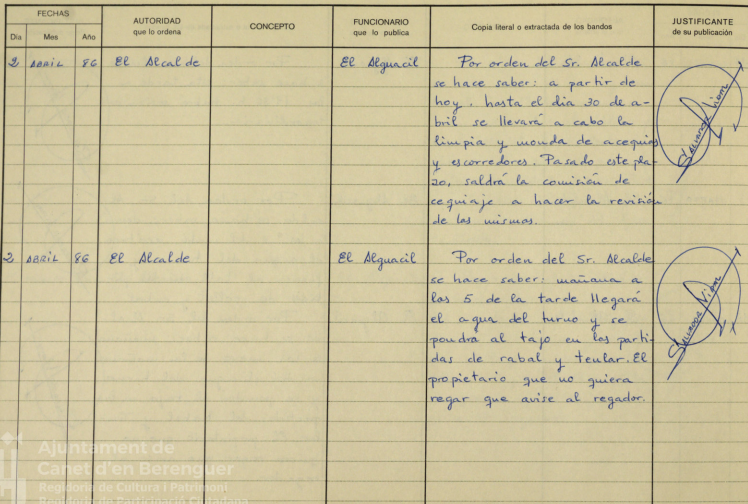 FECHAS
Día Mes Año
AUTORIDAD
que lo ordena
CONCEPTO
FUNCIONARIO
que lo publica
Copia literal o extractada de los bandos
JUSTIFICANTE
de su publicación
2 ABRIL 86 El Alcalde El Alguacil Por orden del Sr. Alcalde
se hace saber: a partir de
hoy, hasta el dia 30 de a-
bril se llevará a cabo la
limpia y monda de acequias
y escorredores. Pasado este pla-
zo, saldrá la comisión de
cequiaje a hacer la revisión
de las mismas.
Salvador
2 ABRIL 86 El Alcalde El Alguacil Por orden del Sr. Alcalde
se hace saber: mañana a
las 5 de la tarde llegará
el agua del turno y se
pondrá al tajo en las parti-
das de rabal y teular. El
propietario que no quiera
regar que avise al regador.
Salvador
Ajuntament de
Canet d'en Berenguer
Regidoria de Cultura i Patrimoni
Regidoria de Participació Ciutadana